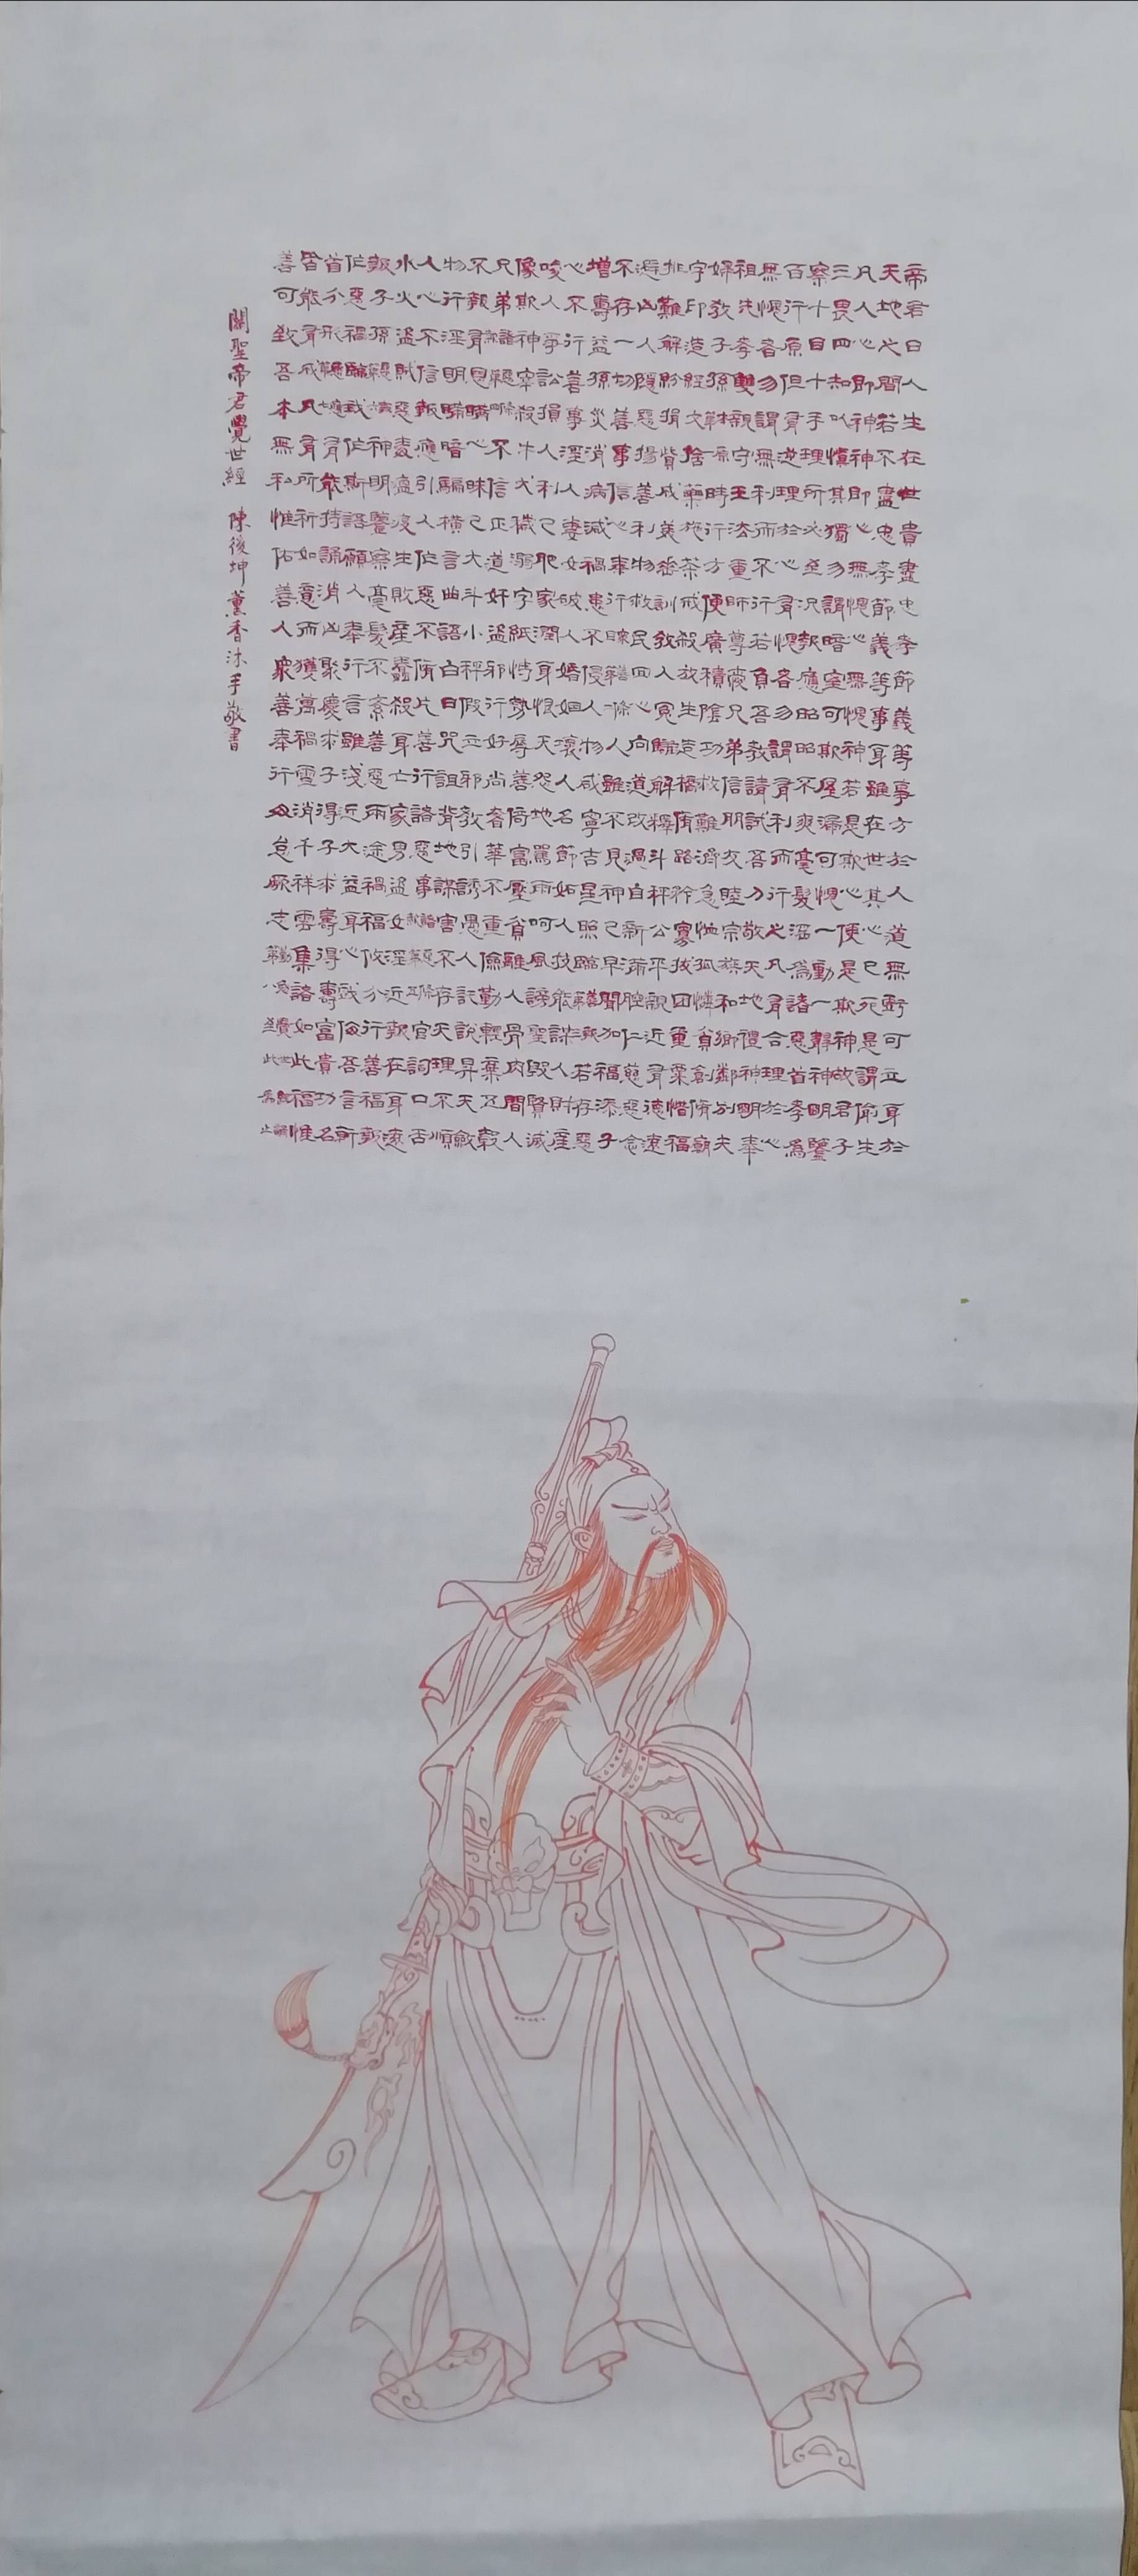 帝君曰人生在世貴盡忠孝節義等事方於人道無虧可立身於
天地之間若不盡忠孝節義等事身雖在世其心已死是謂偷生
凡人心即神神即心無愧心無愧神若是欺心便是欺神故君子
三畏四知以慎其獨勿謂暗室可欺屋漏可愧一動一靜神明鑒
察十目十手理所必至況報應昭昭不爽毫髮淫為諸惡首孝為
百行原但有逆理於心有愧者勿謂有利而行之凡有合理於心
無愧者勿謂無利而不行若負吾教請試吾刀敬天地禮神明奉
祖先孝雙親守王法重師尊愛兄弟信朋友睦宗族和鄉鄰別夫
婦教子孫時行方便廣積陰功救難濟急恤孤憐貧創修廟
宇印造經文捨藥施茶戒殺放生造橋修路矜寡拔困重粟惜福
排難解紛捐貲成美垂訓教人冤讎解釋斗秤公平親近有德遠
避凶人隱惡揚善利物救民回心向道改過自新滿腔仁慈惡念
不存一切善事信心奉行人雖不見神已早聞加福添子
增壽益孫災消病減禍患不侵人物咸寧吉星照臨若存惡
心不行善事淫人妻女破人婚姻壞人名節妒人技能謀人財產
唆人爭訟損人利己肥家潤身恨天怨地罵雨呵風謗聖毀賢滅
像欺神宰殺牛犬穢溺字紙恃勢辱善倚富壓貧離人骨肉間人
兄弟不信正道奸盜邪行好尚奢華不重儉勤輕棄五穀
不報有恩瞞心昧己大斗小秤假立邪教引誘愚人託說昇天斂
物行淫明瞞暗騙橫言曲語白日咒詛背地謀害不存天理不順
人心不信報應引人作惡不修片善行諸惡事官詞口舌
水火盜賊惡毒瘟疫生敗產蠹殺身亡家男盜女淫近報在身遠
報子孫神明鑒察毫髮不紊善惡兩途禍福攸分行善福報
作惡禍臨我作斯語願人奉行言雖淺近大益身心戲侮吾言斬
首分形有能持誦消凶聚慶求子得子求壽得壽富貴功名
皆能有成凡有所祈如意而獲萬禍雪消千祥雲集諸如此福惟
善可致吾本無私惟佑善人眾善奉行毋怠厥志
關聖帝君覺世經 陳後坤薰香沐手敬書